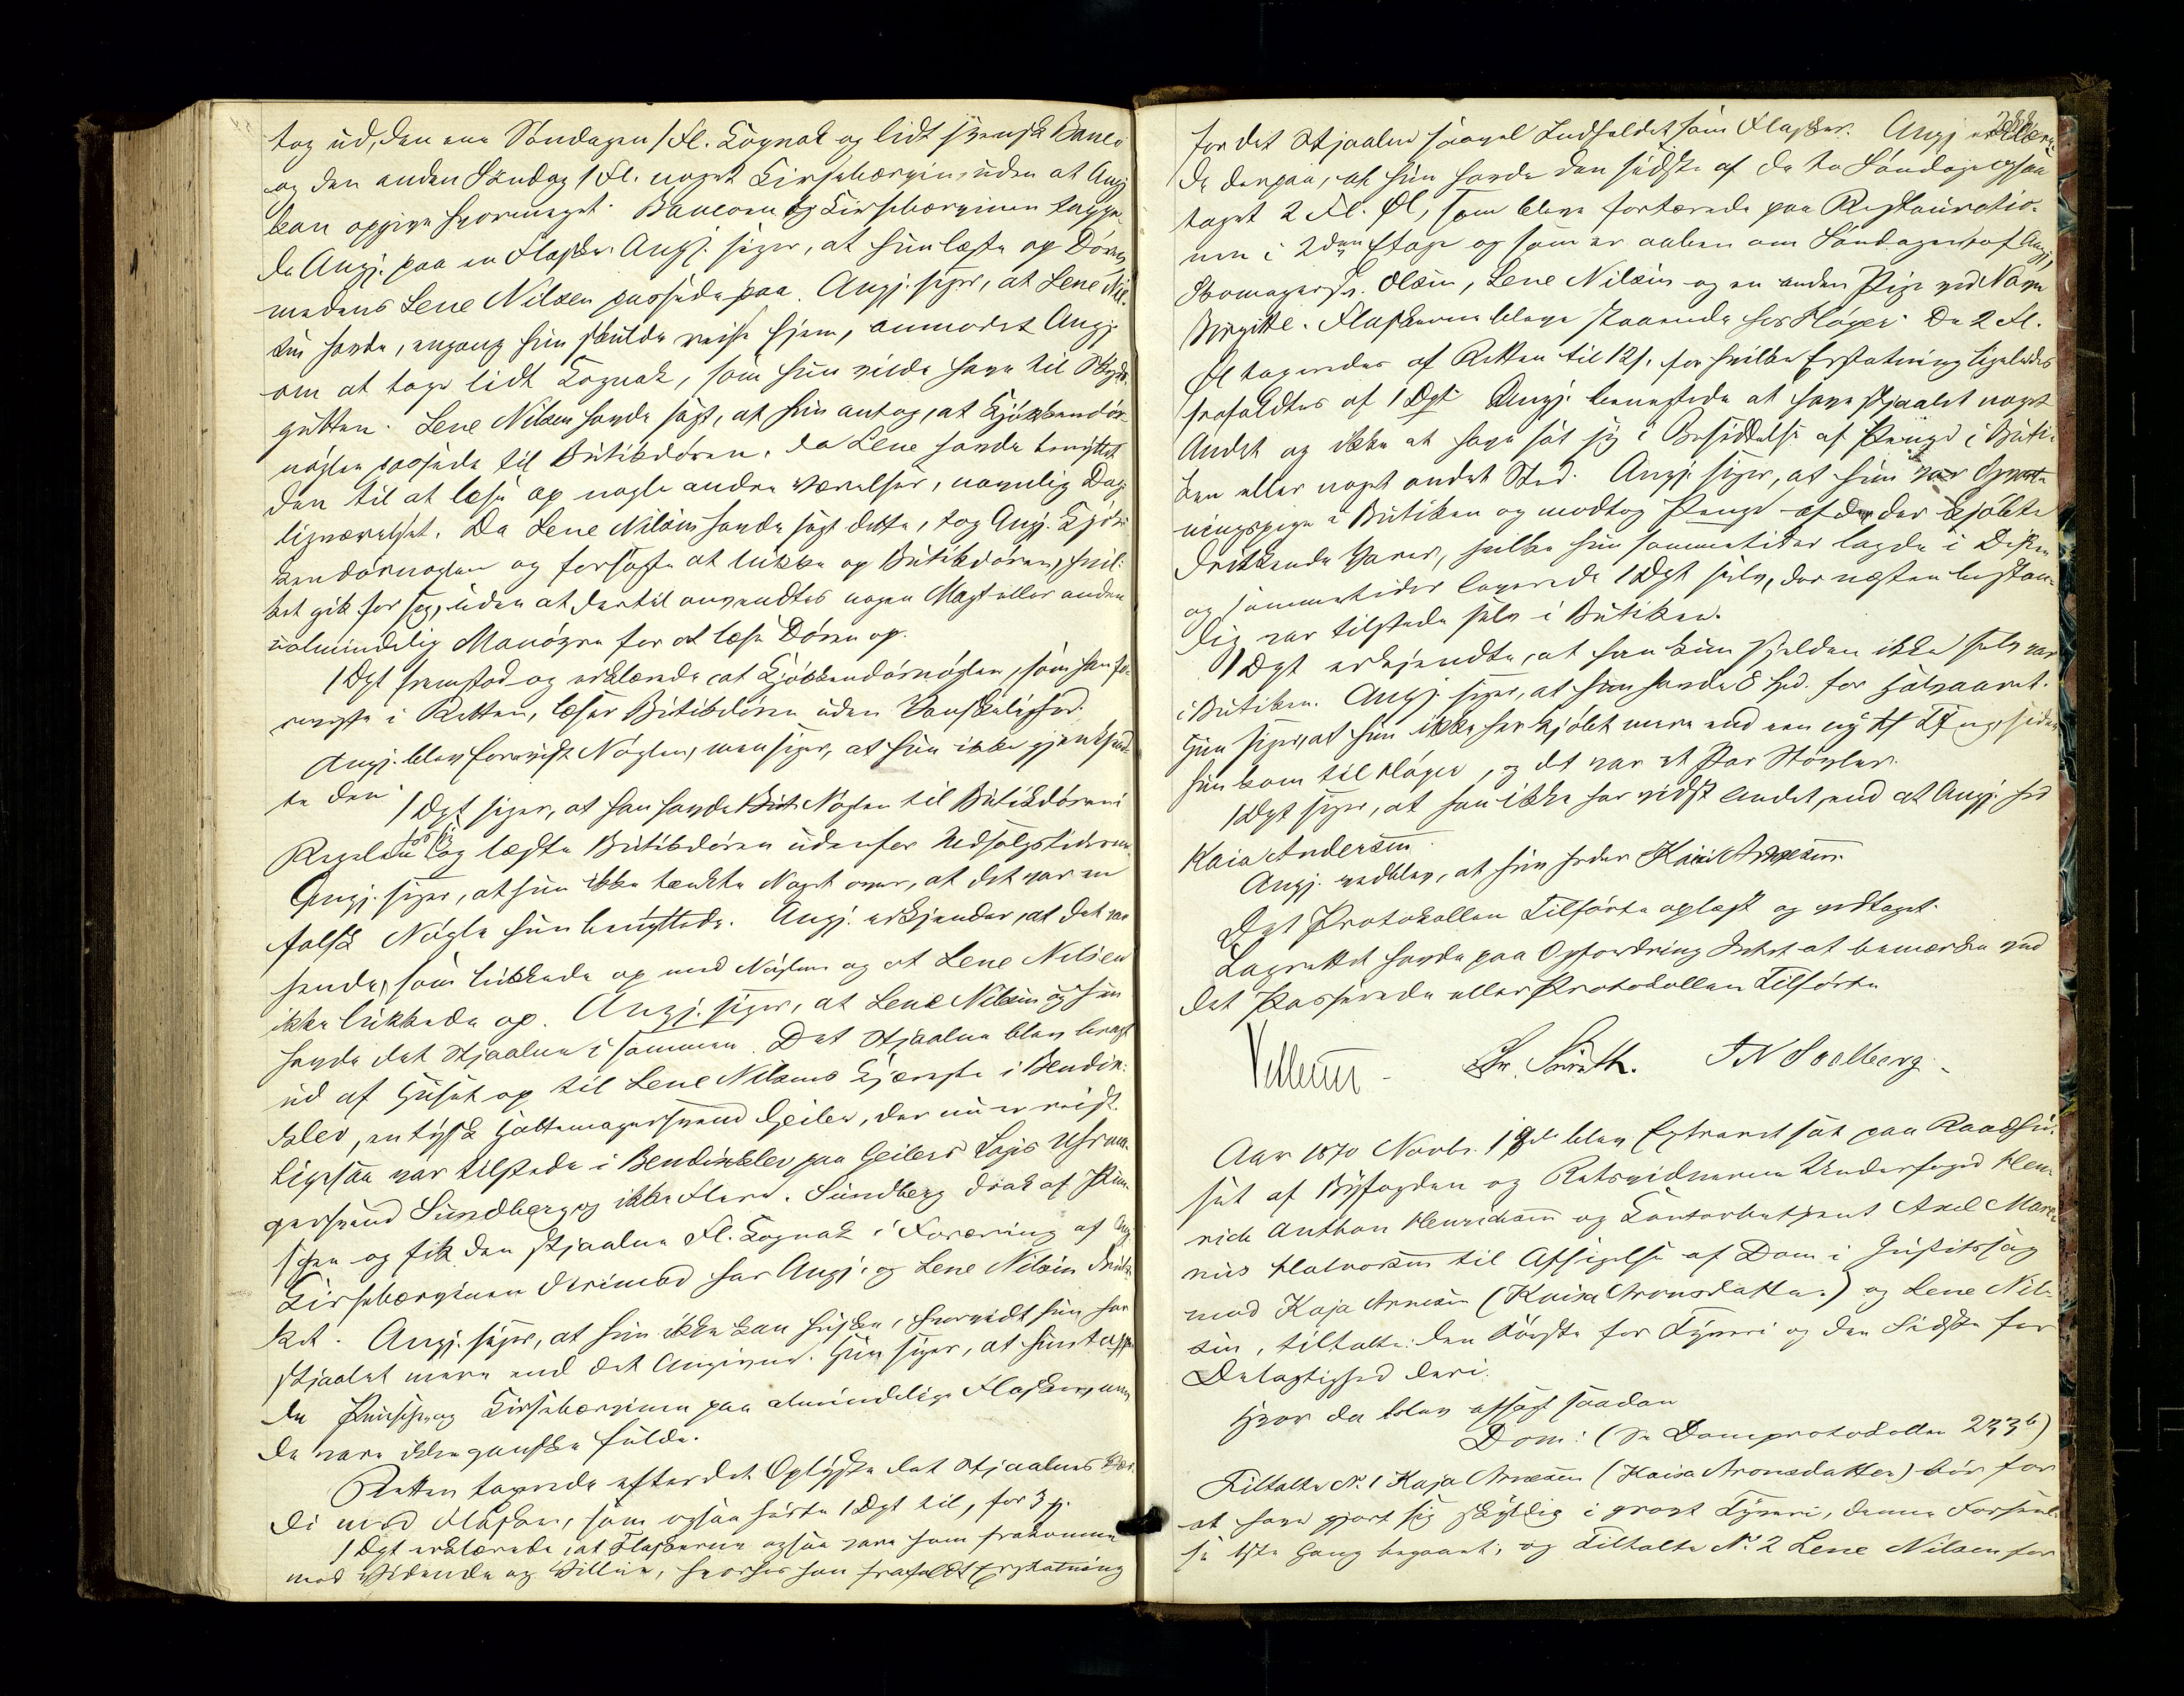 tog ud, den ene Søndagen 1 Fl. Cognak og lidt svensk Banco
og den anden Søndag 1 Fl. noget Kirsebærvin, uden at Angj.
kan opgive hvormeget. Bancoen og Kirsebærvinen tappe-
de Angj. paa en Flaske. Angj. siger, at hun læste op Døren
medens Lene Nilsen passede paa. Angj. siger, at Lene Nil-
sen havde, engang hun skulde reise hjem, anmodet Angj.
om at tage lidt Cognak, som hun vilde have til Skyds-
gutten. Lene Nilsen havde sagt, at hun antog, at Kjøkkendør-
nøglen passede til Butikdøren, da Lene havde benyttet
den til at læse op nogle andre Værelser, navnlig Dag-
ligværelset. Da Lene Nilsen havde sagt dette, tog Angj. Kjøk-
kendørnøglen og forsøgte at lukke op Butikdøren, hvil-
ket gik for sig, uden at dertil anvendtes nogen Magt eller anden
ualmindelig Manøvre for at læse Døren op.
1 Dgt fremstod og erklærede, at Kjøkkendørnøglen, som han fo-
reviste i Retten, læser Butikdøren uden Vanskelighed.
Angj. blev forevist Nøglen, men siger, at hun ikke gjenkjend-
te den.
1 Dgt siger, at han havde Nøglen til Butikdøren i
Regelen hos sig og læste Butikdøren udenfor Udsalgstiderne.
Angj. siger, at hun ikke tænkte Noget over, at det var en
falsk Nøgle hun benyttede. Angj. erkjender, at det var
hende, som lukkede op med Nøglen og at Lene Nilsen
ikke lukkede op. Angj. siger, at Lene Nilsen og hun
havde det Stjaalne i sammen. Det Stjaalne blev bragt
ud af Huset op til Lene Nilsens Kjæreste i Bendix-
klev, en tysk Hattemagersvend Geiler, der nu er reist.
Ligesaa var tilstede i Bendixklev paa Geilers Logis Uhrma-
gersvend Sundberg og ikke Flere. Sundberg drak af Pun-
schen og fik den stjaalne Fl. Cognak i Foræring af Angj.
Kirsebærvinen derimod har Angj. og Lene Nilsen druk-
ket. Angj. siger, at hun ikke kan huske, hvorvidt hun har
stjaalet mere end det Angivne. Hun siger, at hun tappe-
de Punsch og Kirsebærvinen paa almindelige Flasker, men
de vare ikke ganske fulde.
Retten taxerede efter det Oplyste det Stjaalnes Vær-
di med Flasker, som ogsaa hørte 1 Dgt til, for 3 ..
1 Dgt erklærede, at Flaskerne ogsaa vare ham frakomne
mod Vidende og Villie, hvorfor han frafaldt Erstatning
for det Stjaalne saavel Indholdet som Flasker. Angj. erklære-
de derpaa, at hun havde den sidste af de to Søndage ogsaa
taget 2 Fl. Øl, som bleve fortærede paa Restauratio-
nen i 2den Etage og som er aaben om Søndagen, af Angj.,
Skomagersv. Olsen, Lene Nilsen og en anden Pige ved Navn
Birgitte. Flaskerne bleve staaende hos Høyer. De 2 Fl.
Øl taxeredes af Retten til 12 s. for hvilke Erstatning ligeledes
frafaldtes af 1 Dgt. Angj. benegtede at have stjaalet noget
Andet og ikke at have sat sig i Besiddelse af Penge i Buti-
ken eller noget andet Sted. Angj. siger, at hun var Opvart-
ningspige i Butiken og modtog Penge af de der kjøbte
drikkende Varer, hvilke hun sommetider lagde i Disken
og sommetider leverede 1 Dgt selv, der næsten bestan-
dig var tilstede selv i Butiken.
1 Dgt erkjendte, at han kun sjelden ikke selv var
i Butiken. Angj. siger, at hun havde 8 Spd. for Halvaaret.
Hun siger, at hun ikke har kjøbt mere end een ny Ting, siden
hun kom til Høyer, og det var et Par Støvler.
1 Dgt siger, at han ikke har vidst Andet, end at Angj. hed
Kaia Andersen.
Angj. vedblev, at hun heder Kaia Arnesen.
Det Protokollen Tilførte oplæst og vedtaget.
Lagrettet havde paa Opfordring Intet at bemærke ved
det Passerede eller Protokollen Tilførte.
Chr. Smith. J N Soelberg.
Aar 1870 Novbr. 19de blev Extraret sat paa Raadhu-
set af Byfogden og Retsvidnerne Underfoged Hen-
rich Anthon Henrichsen og Contorbetjent Axel Mari-
nius Halvorsen til Afsigelse af Dom i Justitssag
mod Kaja Arnesen (Kaisa Aronsdatter) og Lene Nil-
sen, tiltalte: den Første for Tyveri og den Sidste for
Delagtighed deri.
Hvor da blev afsagt saadan
Dom: (Se Domprotokollen 233b)
Tiltalte No 1 Kaja Arnesen (Kaisa Aronsdatter) bør for
at have gjort sig skyldig i grovt Tyveri, denne Forseel-
se 1ste Gang begaaet, og Tiltalte No 2 Lene Nilsen for